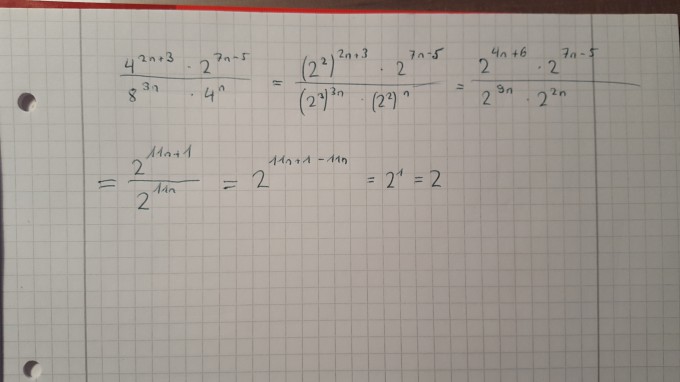 \frac{4^{2n+3} \cdot 2^{7n-5}}{8^{3n} \cdot 4^{n}} = \frac{(2^2)^{2n+3} \cdot 2^{7n-5}}{(2^3)^{3n} \cdot (2^2)^{n}} = \frac{2^{4n+6} \cdot 2^{7n-5}}{2^{9n} \cdot 2^{2n}}
= \frac{2^{11n+1}}{2^{11n}} = 2^{11n+1-11n} = 2^1 = 2